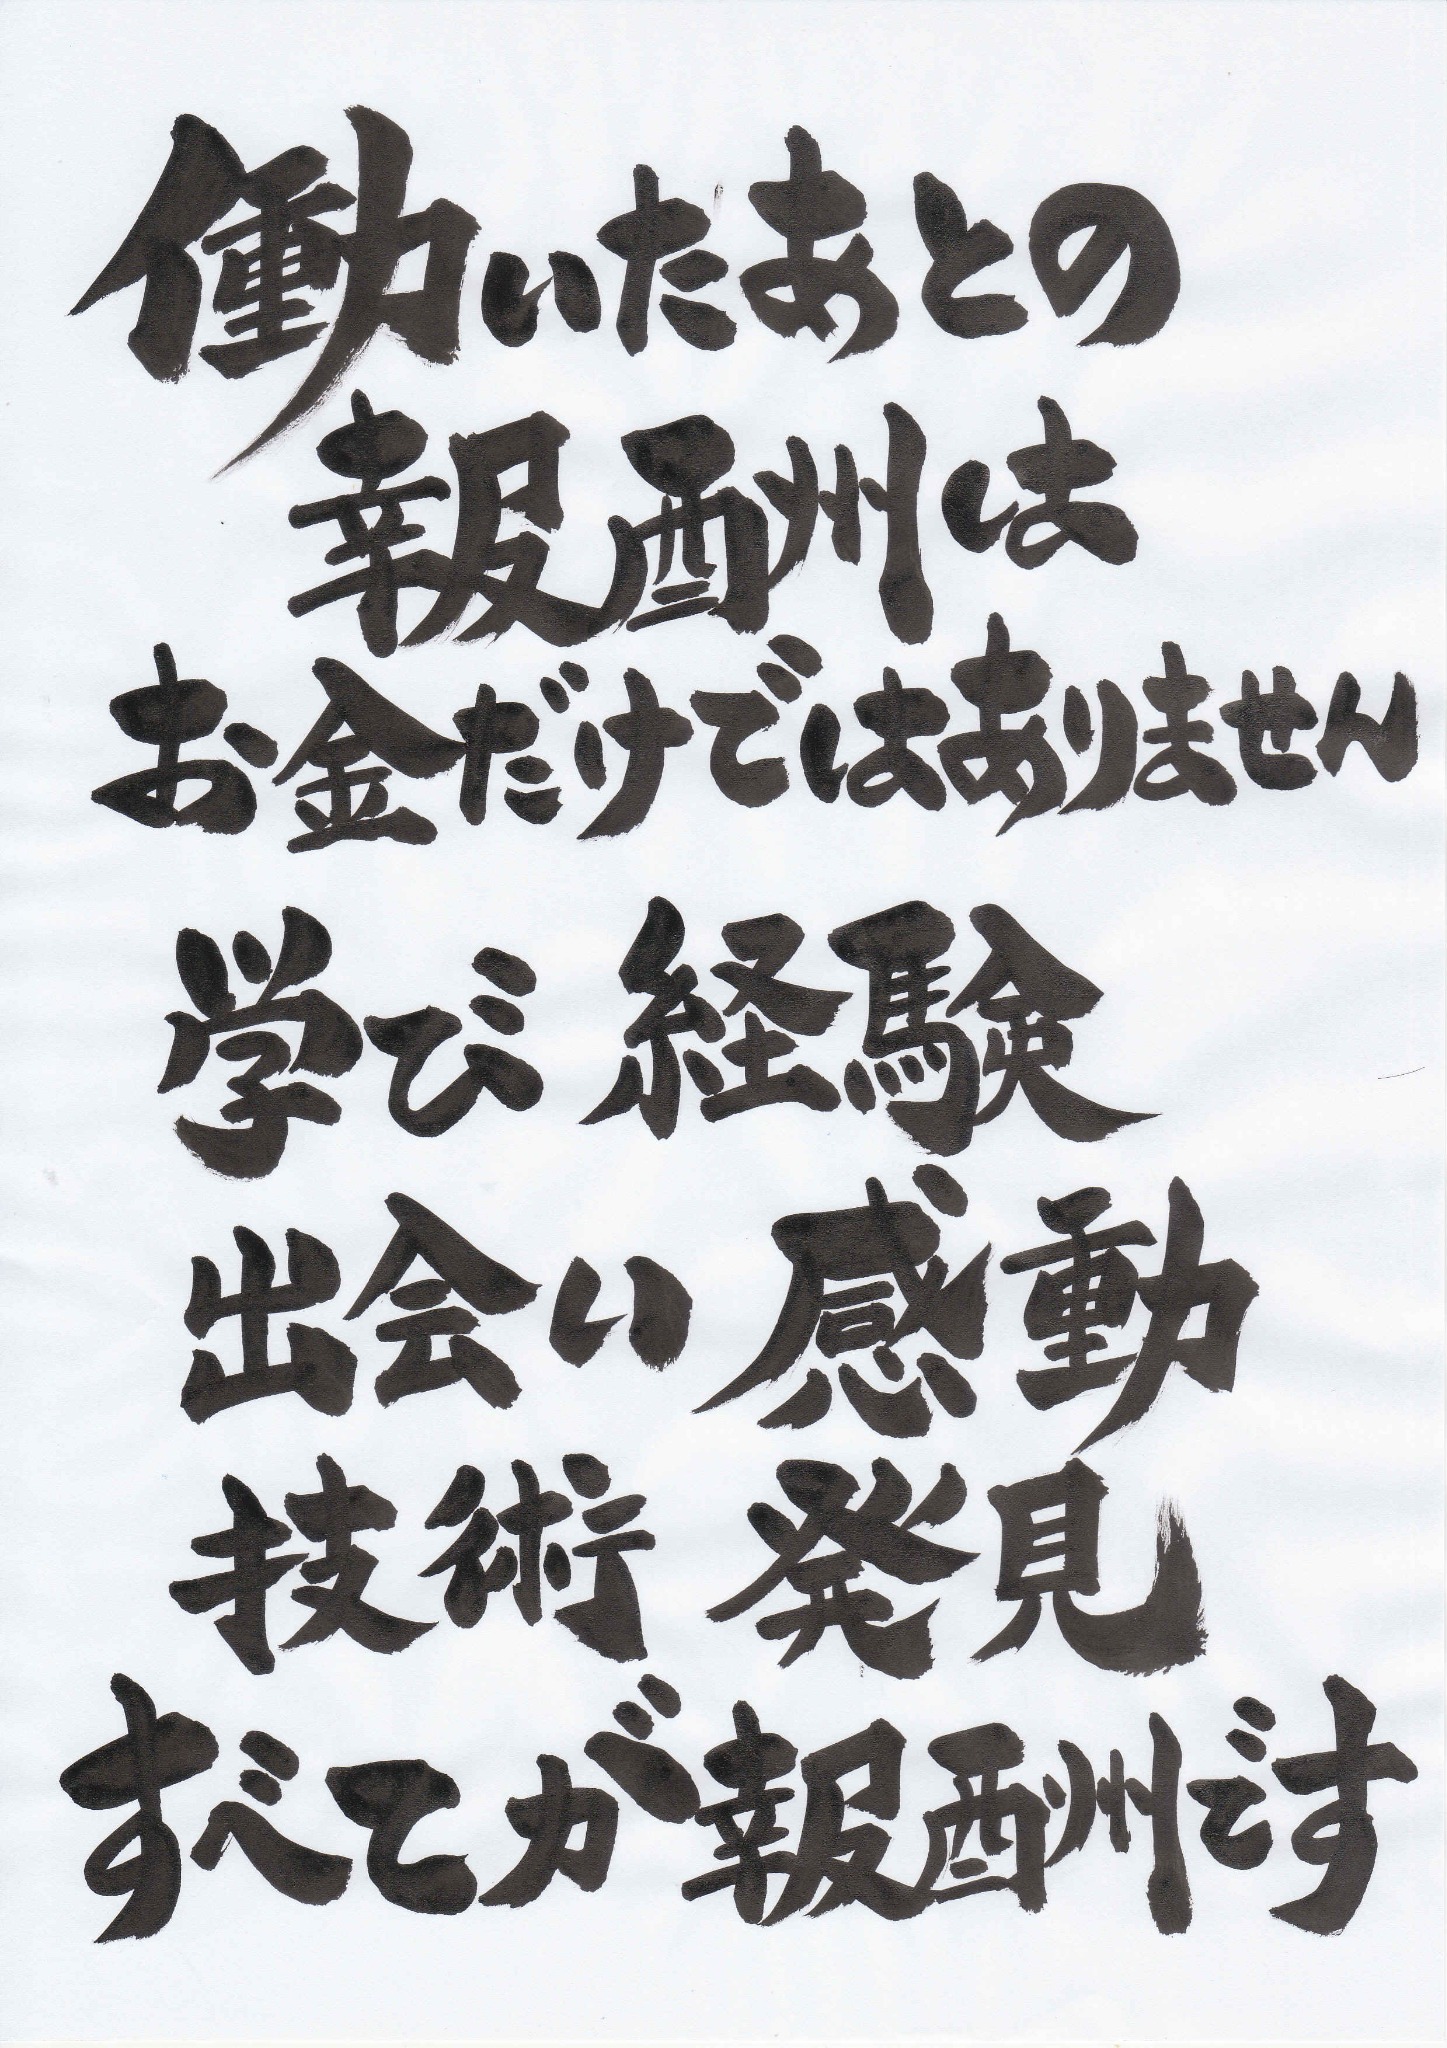 働いたあとの
報酬は
お金だけではありません
学び 経験
出会い 感動
技術 発見
すべてが報酬です